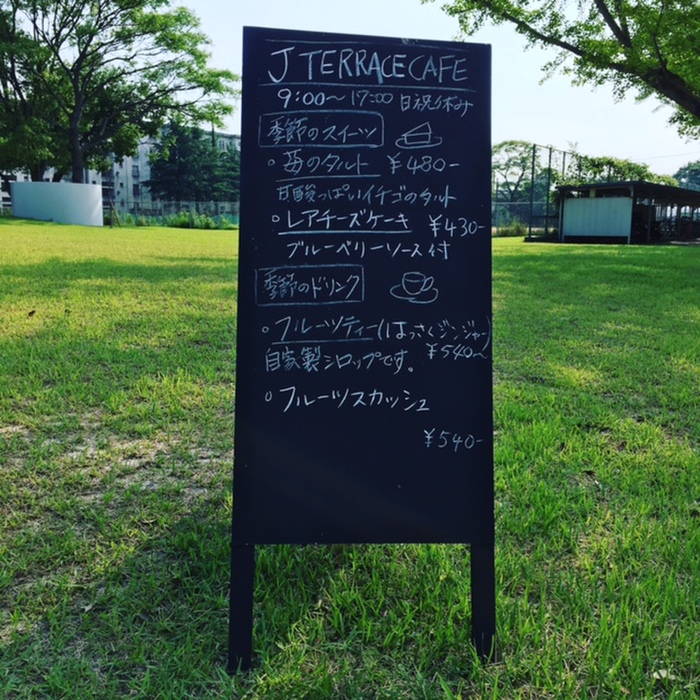 J TERRACE CAFE
9:00～17:00 日祝休み
季節のスイーツ
・苺のタルト ¥480-
甘酸っぱいイチゴのタルト
・レアチーズケーキ ¥430-
ブルーベリーソース付
季節のドリンク
・フルーツティー(はっさくジンジャー)
自家製シロップです。 ¥540～
・フルーツスカッシュ
¥540-